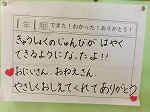 1年 組 できた！わかった！ありがとう！
きゅうしょくのじゅんびが はやく
できるようになったよ！！
おにいさん、おねえさん、
やさしくおしえてくれてありがとう